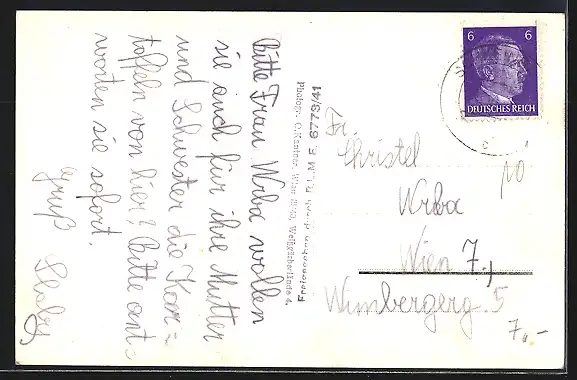 bitte Frau Wrba wollen
sie auch für ihre Mutter
und Schwester die Kar=
toffeln von hier? Bitte ant=
worten sie sofort.
Gruß
Photogr. C. Kantner, Wien
Freigegeben durch R.L.M E. 6773/41
6 6
DEUTSCHES REICH
Fr.
Christel
Wrba
Wien 7.,
Wimbergerg. 5
7,-